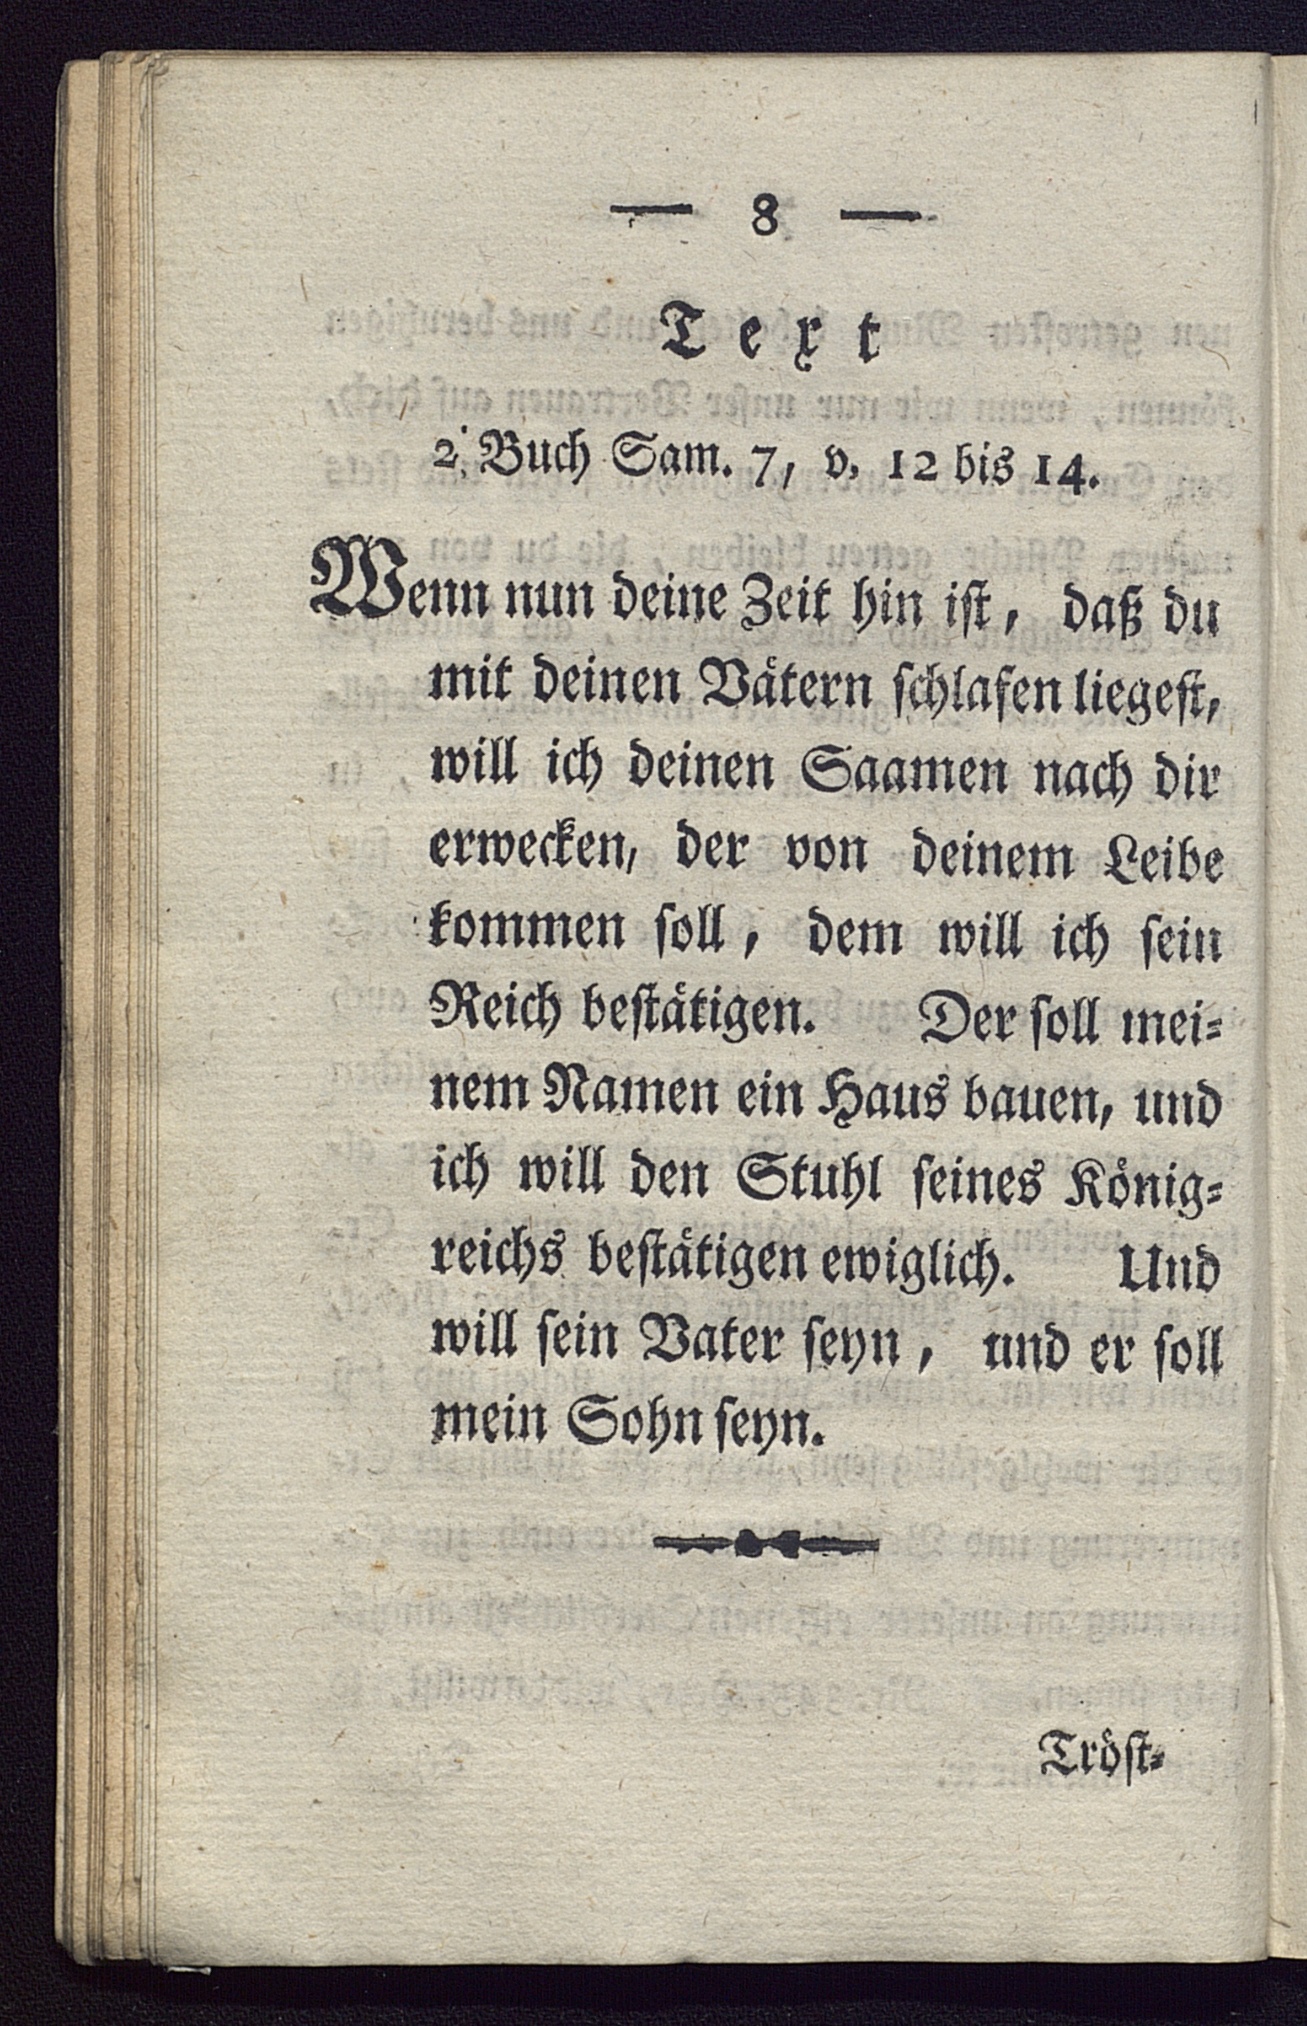 — 8 —
Text
2. Buch Sam. 7, v. 12 bis 14.
Wenn nun deine Zeit hin iſt, daß du
mit deinen Vätern ſchlafen liegeſt,
will ich deinen Saamen nach dir
erwecken, der von deinem Leibe
kommen ſoll, dem will ich ſein
Reich beſtätigen. Der ſoll mei⸗
nem Namen ein Haus bauen, und
ich will den Stuhl ſeines König⸗
reichs beſtätigen ewiglich. Und
will ſein Vater ſeyn, und er ſoll
mein Sohn ſeyn.
Tröſt⸗